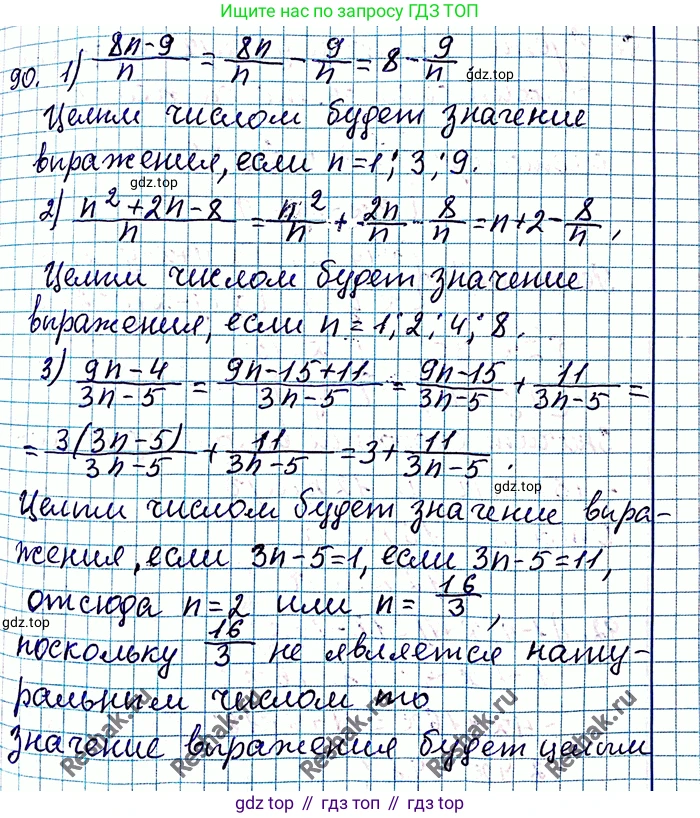 Ищите нас по запросу ГДЗ ТОП
90. 1) \frac{8n-9}{n} = \frac{8n}{n} - \frac{9}{n} = 8 - \frac{9}{n}.
gdz.top
Целым числом будет значение
выражения, если n=1; 3; 9.
gdz.top
2) \frac{n^2+2n-8}{n} = \frac{n^2}{n} + \frac{2n}{n} - \frac{8}{n} = n+2-\frac{8}{n},
Целым числом будет значение
выражения, если n=1; 2; 4; 8.
3) \frac{9n-4}{3n-5} = \frac{9n-15+11}{3n-5} = \frac{9n-15}{3n-5} + \frac{11}{3n-5} =
= \frac{3(3n-5)}{3n-5} + \frac{11}{3n-5} = 3 + \frac{11}{3n-5}.
Целым числом будет значение выра-
жения, если 3n-5=1, если 3n-5=11,
отсюда n=2 или n=\frac{16}{3},
gdz.top
поскольку \frac{16}{3} не является нату-
ральным числом то
значение выражения будет целым
Reshak.ru Reshak.ru Reshak.ru
gdz.top // гдз.топ // gdz.top